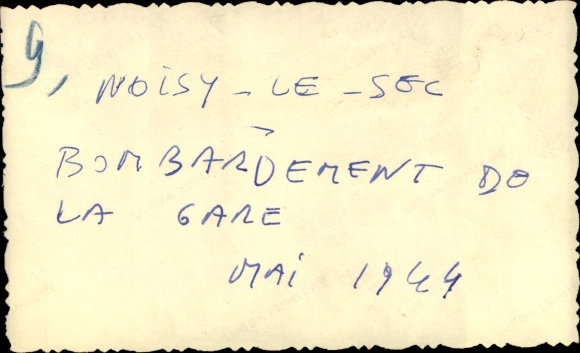 9, NOISY-LE-SEC
BOMBARDEMENT DE
LA GARE
MAI 1944